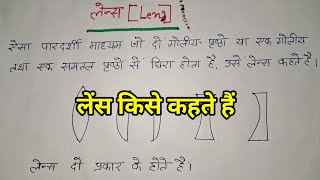 लेन्स [Lens]
ऐसा पारदर्शी माध्यम जो दो गोलीय पृष्ठों या एक गोलीय
तथा एक समतल पृष्ठों से घिरा होता है, उसे लेन्स कहते है।
लेंस किसे कहते हैं
लेन्स दो प्रकार के होते है।